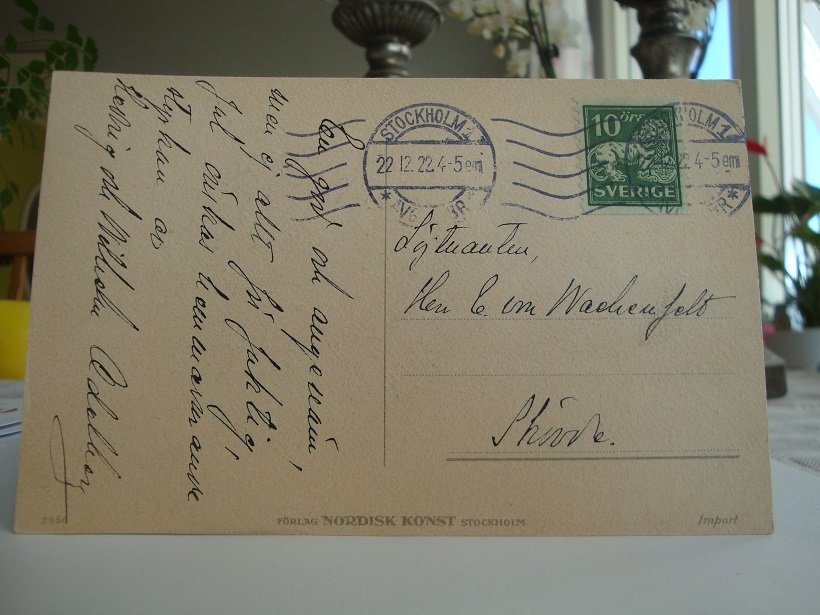 En god och angenäm,
men ej allt för fuktig,
Jul önskas hemmavarande
styrkan av
Hedvig och Wilhelm Odelberg
STOCKHOLM 1
22.12.22.4-5 em
*AVG
10 ÖRE
SVERIGE
OLM 1
22.4-5 em
Löjtnanten,
Herr C von Wachenfelt
Skövde.
2956
FÖRLAG NORDISK KONST STOCKHOLM
Import